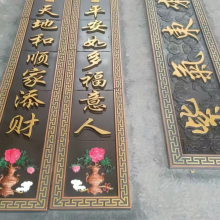 天地和顺家添财
平安如多福意人
紫氣東